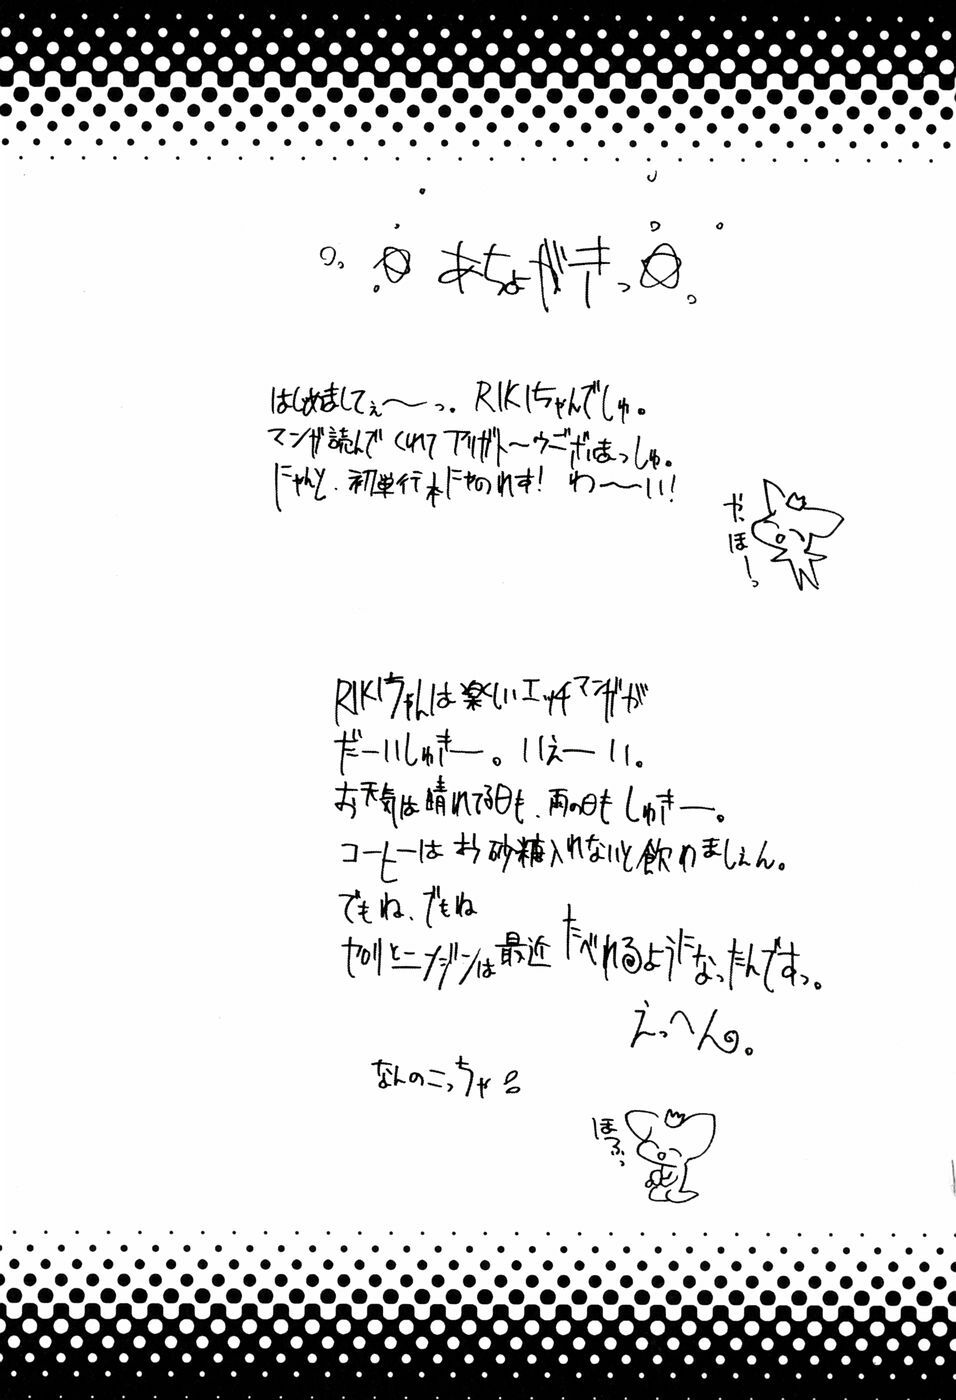 あちょがきっ
はじめましてぇ〜っ。RIKIちゃんでしゅ。
マンガ読んでくれてアリガト〜ウございまっしゅ。
にゃんと、初単行本にゃのれす! わ〜い!
やっほーっ
RIKIちゃんは楽しいエッチマンガが
だーいしゅきー。いえーい。
お天気は晴れてる日も、雨の日もしゅきー。
コーヒーはお砂糖入れないと飲めましぇん。
でもね、でもね
ヤサイとニンジンは最近たべれるようになったんですっ。
えっへん。
なんのこっちゃ
ほふっ